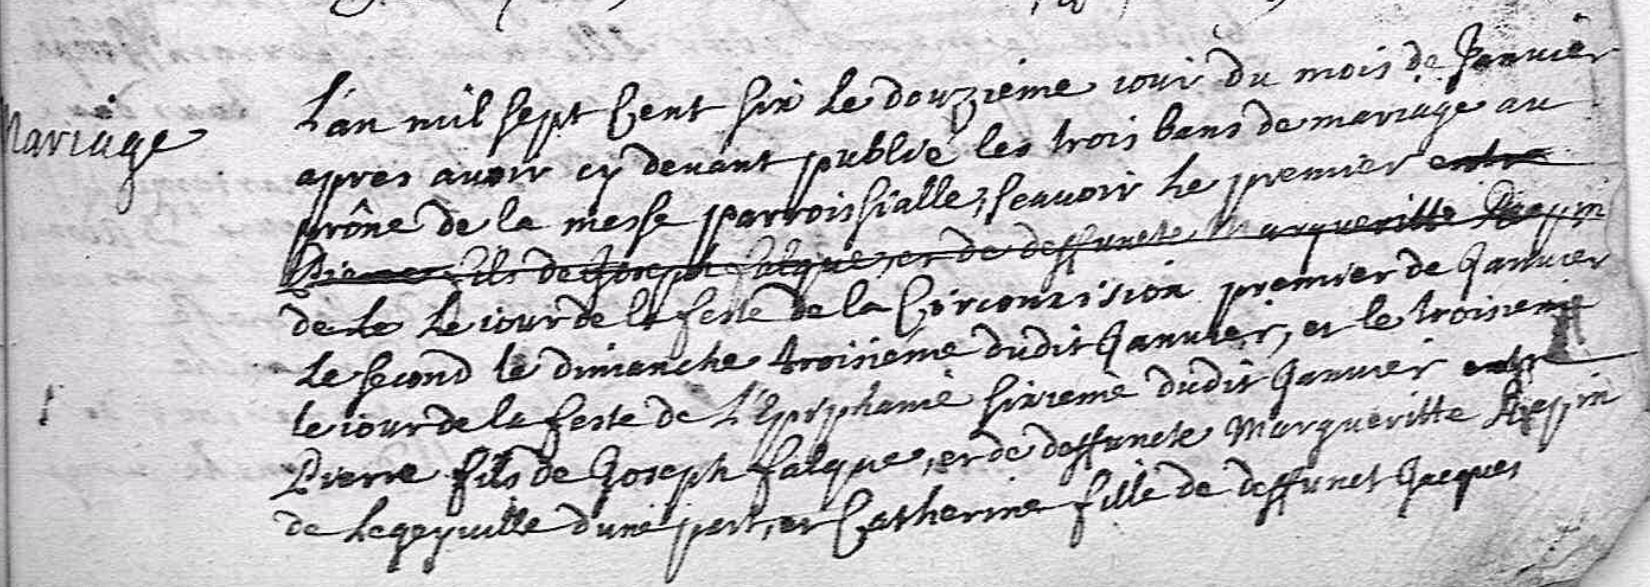 Mariage
L'an mil sept Cent six le douziéme iour du mois de Januier
apres auoir cy deuant publié les trois bans de mariage au
prône de la messe parroissialle, scauoir le premier entre
Pierre fils de Joseph falque, et de deffuncte Margueritte
de Le Le iour de la feste de la Circoncision premier de Januier
le second le dimanche troisiéme dudit Januier, et le troisieme
le iour de la feste de L'Epiphanie sixieme dudit Januier entre
Pierre fils de Joseph falque, et de deffuncte Margueritte
de d'une part, et Catherine fille de deffunct Jacques